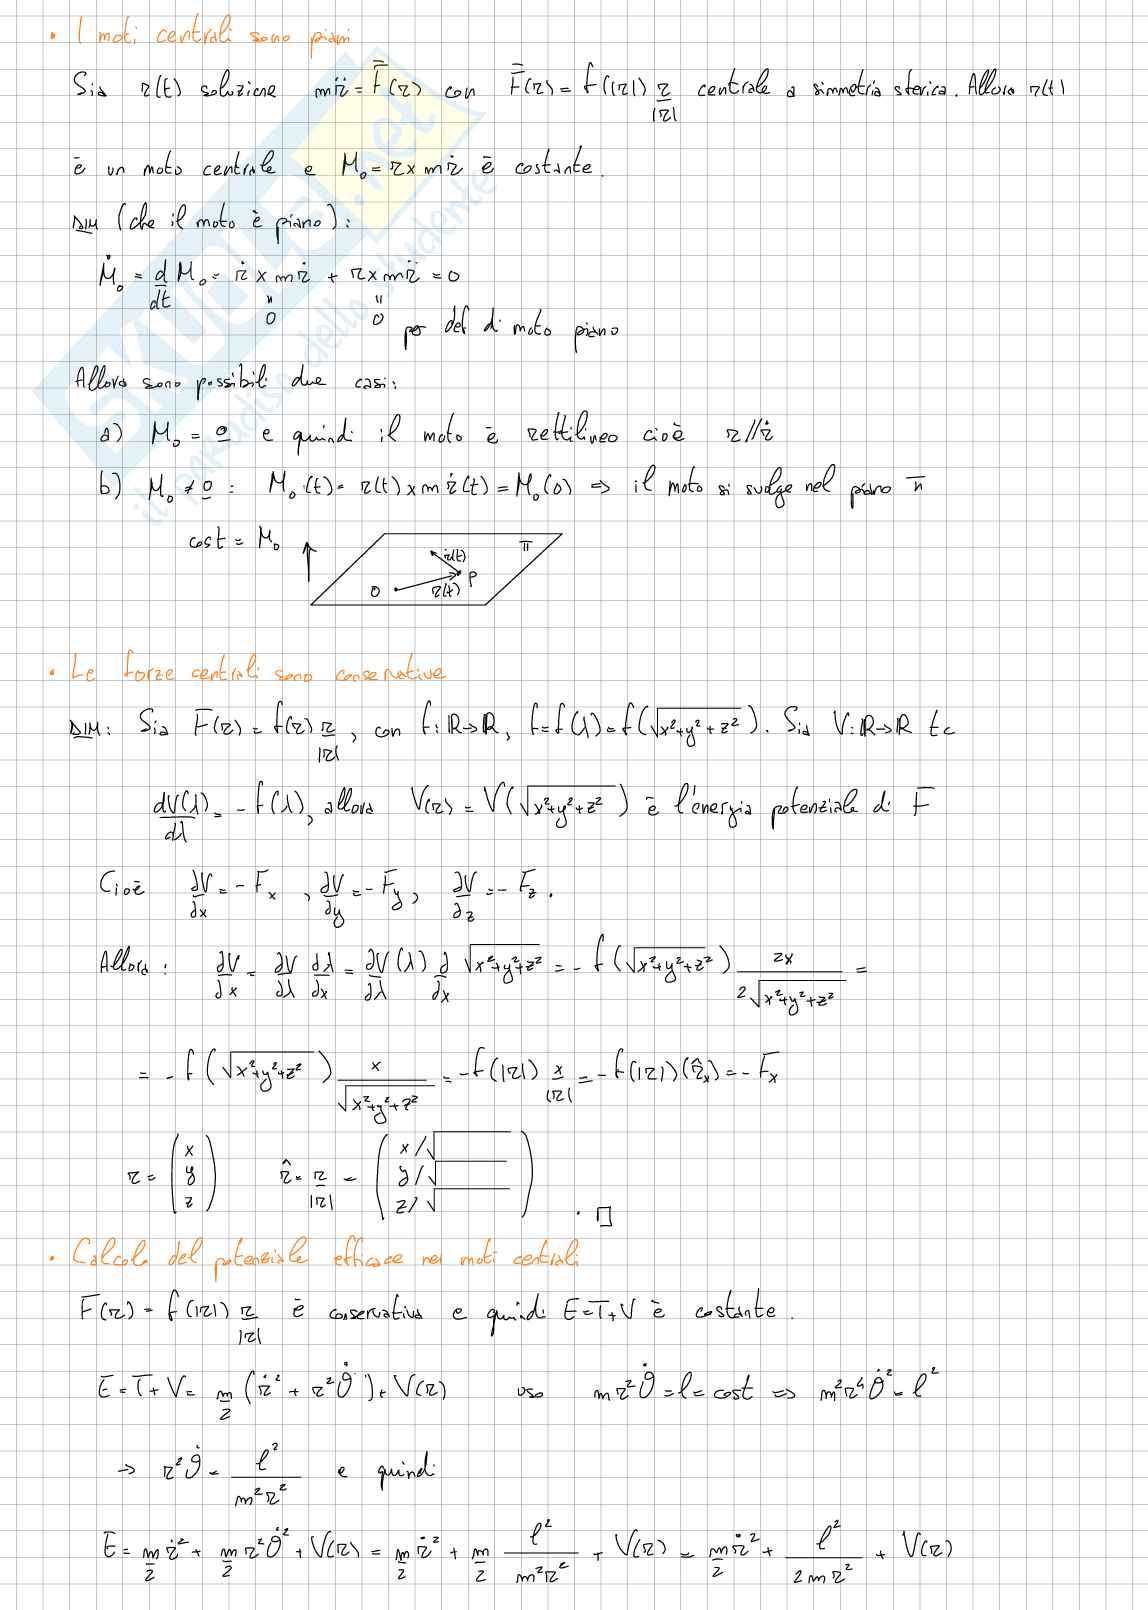 • I moti centrali sono piani
Sia r(t) soluzione mr̈ = F̄(r) con F̄(r) = f(|r|) r/|r| centrale a simmetria sferica. Allora r(t)
è un moto centrale e M₀ = r x mṙ è costante.
DIM (che il moto è piano):
Ṁ₀ = d/dt M₀ = ṙ x mṙ + r x mr̈ = 0
" 0 " 0 per def di moto piano
Allora sono possibili due casi:
a) M₀ = 0 e quindi il moto è rettilineo cioè r // ṙ
b) M₀ ≠ 0 : M₀(t) = r(t) x mṙ(t) = M₀(0) => il moto si svolge nel piano π
cost = M₀
π
ṙ(t)
O r(t) P
• Le forze centrali sono conservative
DIM: Sia F(r) = f(r) r/|r|, con f: ℝ→ℝ, f = f(λ) = f(√x²+y²+z²). Sia V: ℝ→ℝ tc
dV(λ)/dλ = - f(λ), allora V(r) = V(√x²+y²+z²) è l'energia potenziale di F
Cioè ∂V/∂x = - Fx , ∂V/∂y = - Fy, ∂V/∂z = - Fz.
Allora: ∂V/∂x = ∂V/∂λ ∂λ/∂x = ∂V(λ)/∂λ ∂/∂x √x²+y²+z² = - f(√x²+y²+z²) 2x/2√x²+y²+z² =
= - f(√x²+y²+z²) x/√x²+y²+z² = - f(|r|) x/|r| = - f(|r|)(r̂x) = - Fx
r = (x y z) r̂ = r/|r| = (x/√ y/√ z/√) . □
• Calcolo del potenziale efficace nei moti centrali
F(r) = f(|r|) r/|r| è conservativa e quindi E = T + V è costante.
E = T + V = m/2 (ṙ² + r²θ̇) + V(r) uso mr²θ̇ = l = cost => m²r⁴θ̇² = l²
→ r²θ̇ = l²/m²r² e quindi
E = m/2 ṙ² + m/2 r²θ̇² + V(r) = m/2 ṙ² + m/2 l²/m²r² + V(r) = m/2 ṙ² + l²/2mr² + V(r)
SKUOLA.net
il paradiso dello studente